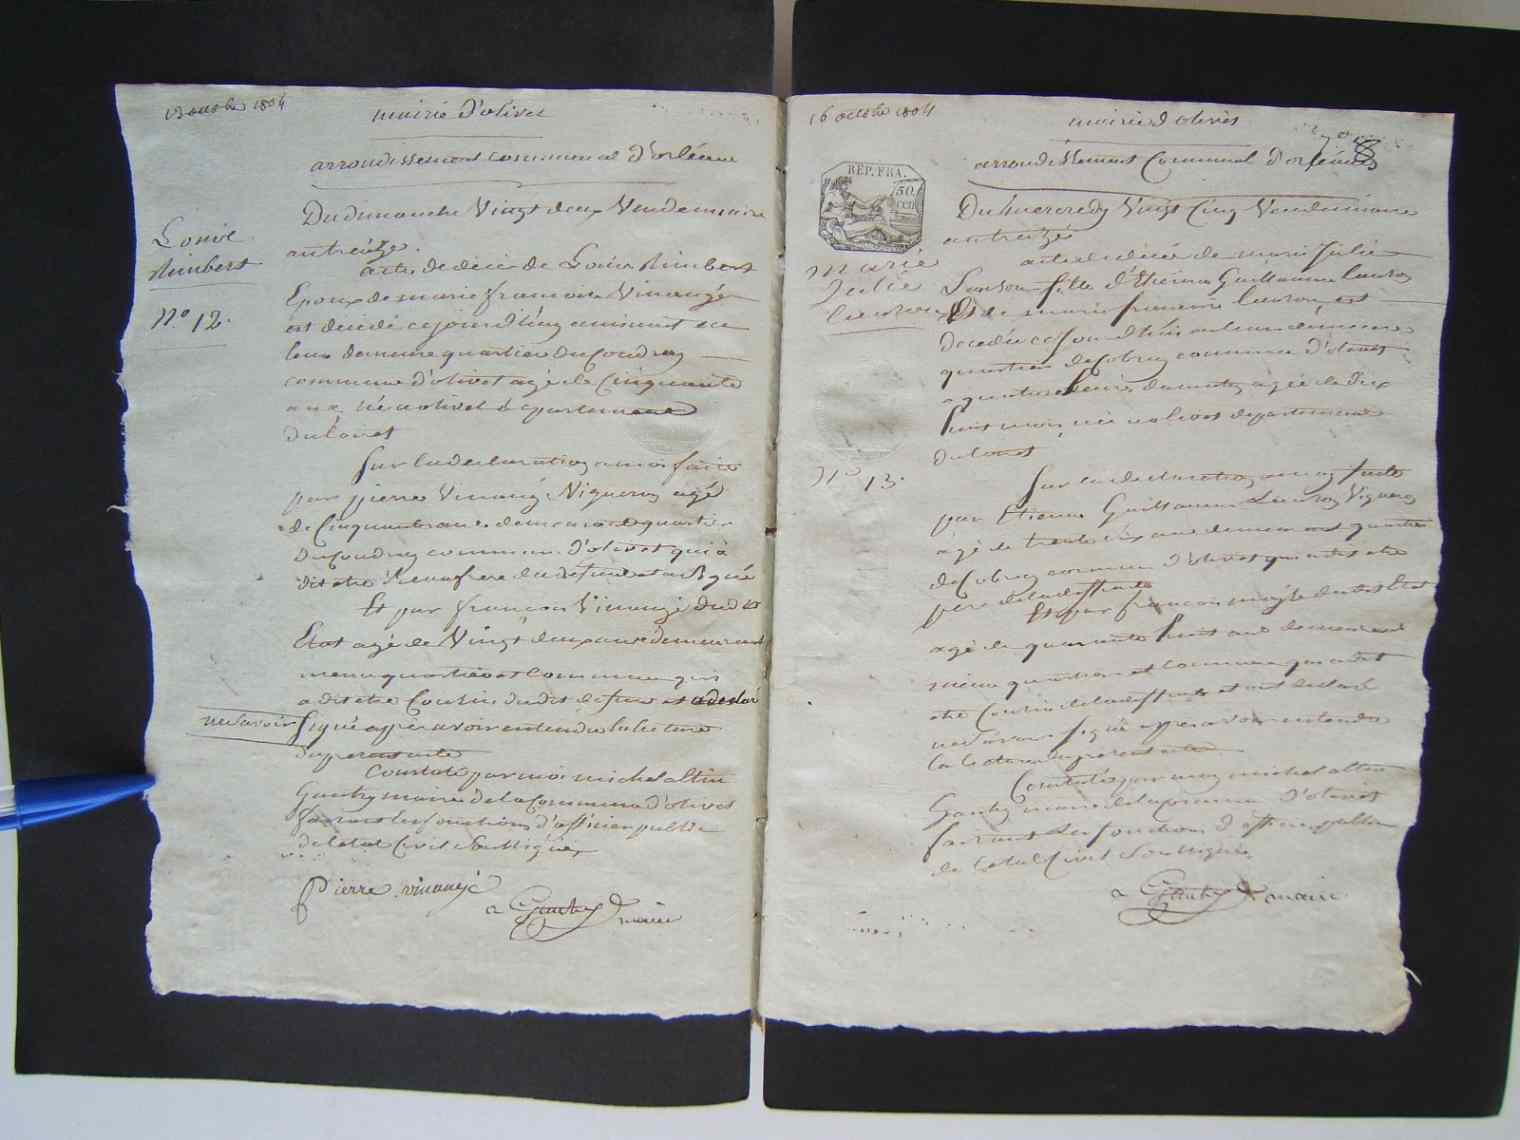 mairie d'olivet
arrondissement communal d'orléans
Du dimanche Vingt deux Vendemiaire
an treize.
Louis
Rimbert
n° 12.
acte de décè de Louis Rimbert
Epoux de marie francoise Vinauge
est décédé ce jour d'huy
leur demeure quartier du Coudray
commune d'olivet agé de Cinquante
ans né a olivet départemene
du loiret
Sur la declaration a moi faite
par pierre Vinauge Vigneron agé
de Cinquante ans demeurant quartier
du Coudray commune d'olivet qui a
dit etre Beaufrere du defunt et a signé
Et par francois Vinauge dudit
Etat agé de Vingt deux ans demeurant
meme quartier et Commune qui
a dit etre Cousin du dit defunt et a declaré
ne Savoir
Signé apres avoir entendu la lecture
du present acte
Constaté par moi michel altin
Gautry maire de la Commune d'olivet
faisant les fonctions d'officier public
de l'etat Civil Soussigné
Pierre vinauge
a Gautry maire
16 octobre 1804
mairie d'olivet
8
arrondissement Communal d'orléans
REP. FRA.
50
CEN
Du mercredy Vingt Cinq Vendemiaire
an treize
marie
Julie
n° 13.
acte de décé de marie Julie
fille d'Etienne Guillaume
Et de marie
décédée ce jour d'hui en leur demeure
quartier de commune d'olivet
agée de dix
huit mois née a olivet departement
du loiret
Sur la declaration a moy faite
par Etienne Guillaume Vigneron
agé de trente ans demeurant quartier
de commune d'olivet qui a dit etre
pere de la deffunte
Et par francois dudit Etat
agé de quarante huit ans demeurant
même quartier et Commune qui a dit
etre Cousin de la deffunte et ont declaré
ne Savoir Signé apprés avoir entendu
la lecture du present acte
Constaté par moy michel altin
Gautry maire de la Commune d'olivet
faisant les fonctions d'officier public
de l'etat Civil Soussigné
a Gautry maire